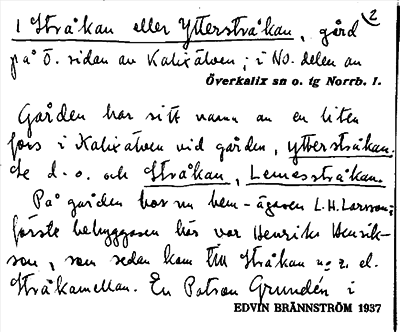 2
1 Stråkan eller Ytterstråkan, gård
på ö. sidan av Kalixälven; i NO. delen av
Överkalix sn o. tg Norrb. l.
Gården har sitt namn av en liten
fors i Kalixälven vid gården, Ytterstråkan.
Se d. o. och Stråkan, Lemesstråkan.
På gården bor nu hem-ägaren L.H. Larsson;
förste bebyggaren här var Henriks Henrik-
son, som sedan kom till Stråkan no 2. el.
Stråkamellan. En Patron Grundén i
EDVIN BRÄNNSTRÖM 1937